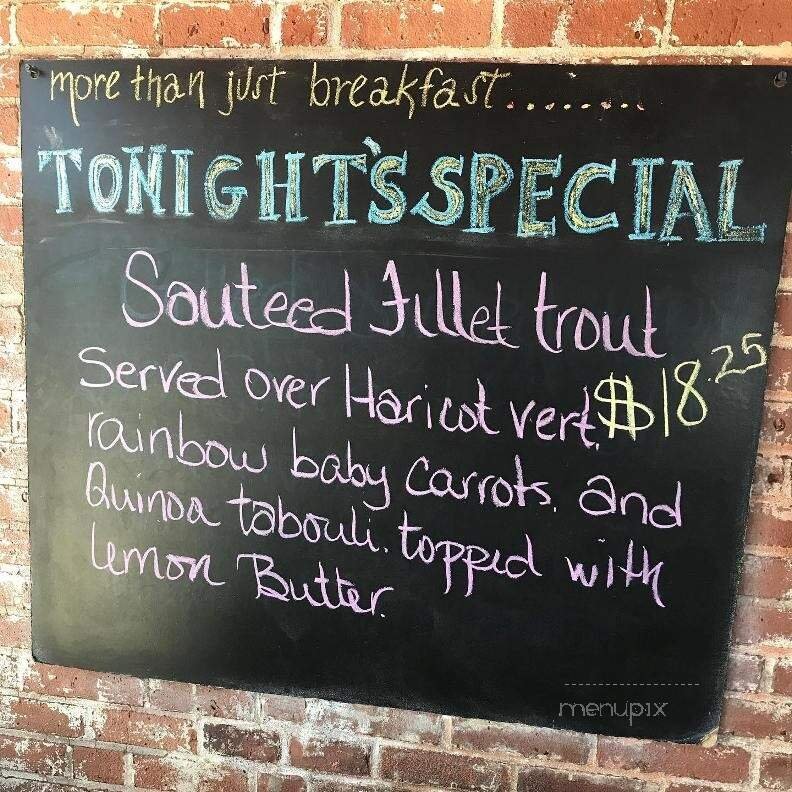 more than just breakfast.........
TONIGHT'S SPECIAL
Sauteed Fillet trout
Served over Haricot vert. $18.25
rainbow baby carrots. and
Quinoa tabouli. topped with
lemon Butter.
menupix